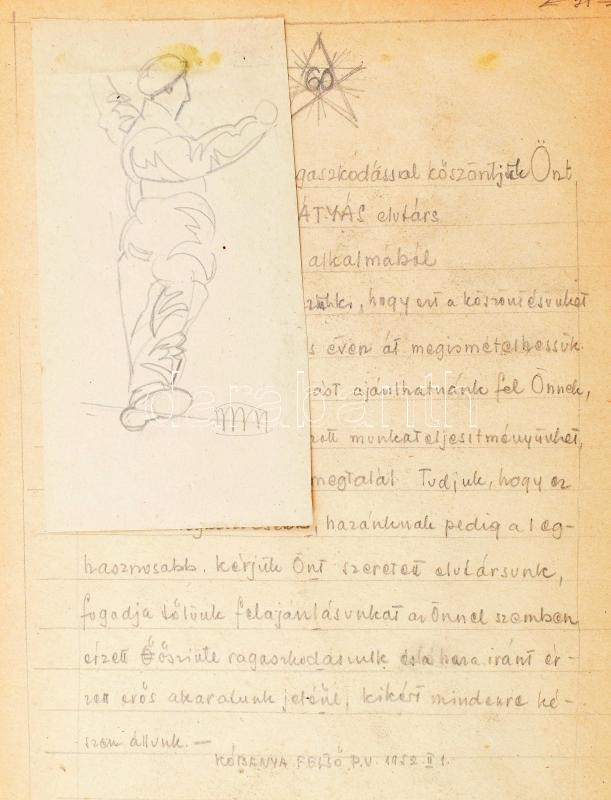 60
gaszkodással köszöntjük Önt
ÁTYÁS elvtárs
alkalmából
hogy ezt a köszöntésünket
s éven át megismételhessük.
ást ajánlhatnánk fel Önnek,
zott munkateljesítményünket,
megtalál Tudjuk, hogy ez
, hazánknak pedig a leg-
hasznosabb. kérjük Önt szeretett elvtársunk,
fogadja tőlünk felajánlásunkat az Önnel szemben
érzett őszinte ragaszkodásunk és a haza iránt ér-
zett erős akaratunk jeléül, kikért mindenre ké-
szen állunk. —
KŐBÁNYA FELSŐ P.V. 1952 II 1.
darabanth